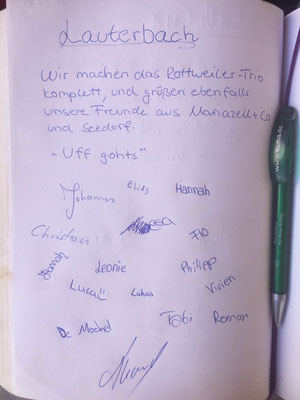 Lauterbach
Wir machen das Rottweiler-Trio
komplett, und größen ebenfalls
unsere Freunde aus Mariazell + Co
und Seedorf.
"Uff gohts"
Johannes Elias Hannah
Christian Flo
Hannah Leonie Philipp
Luca!! Lukas Vivien
Tobi Roman